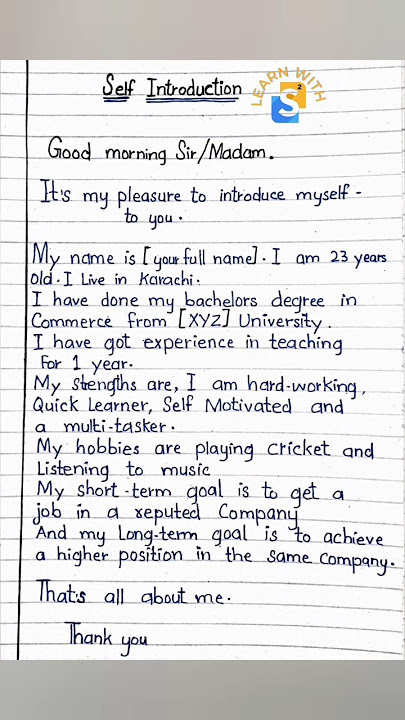 Self Introduction
LEARN WITH
S2
Good morning Sir/Madam.
It's my pleasure to introduce myself -
to you.
My name is [your full name]. I am 23 years
old. I Live in Karachi.
I have done my bachelors degree in
Commerce from [XYZ] University.
I have got experience in teaching
For 1 year.
My Stengths are, I am hard-working,
Quick Learner, Self Motivated and
a multi-tasker.
My hobbies are playing cricket and
Listening to music
My short-term goal is to get a
job in a reputed Company
And my Long-term goal is to achieve
a higher position in the same Company.
That's all about me.
Thank you